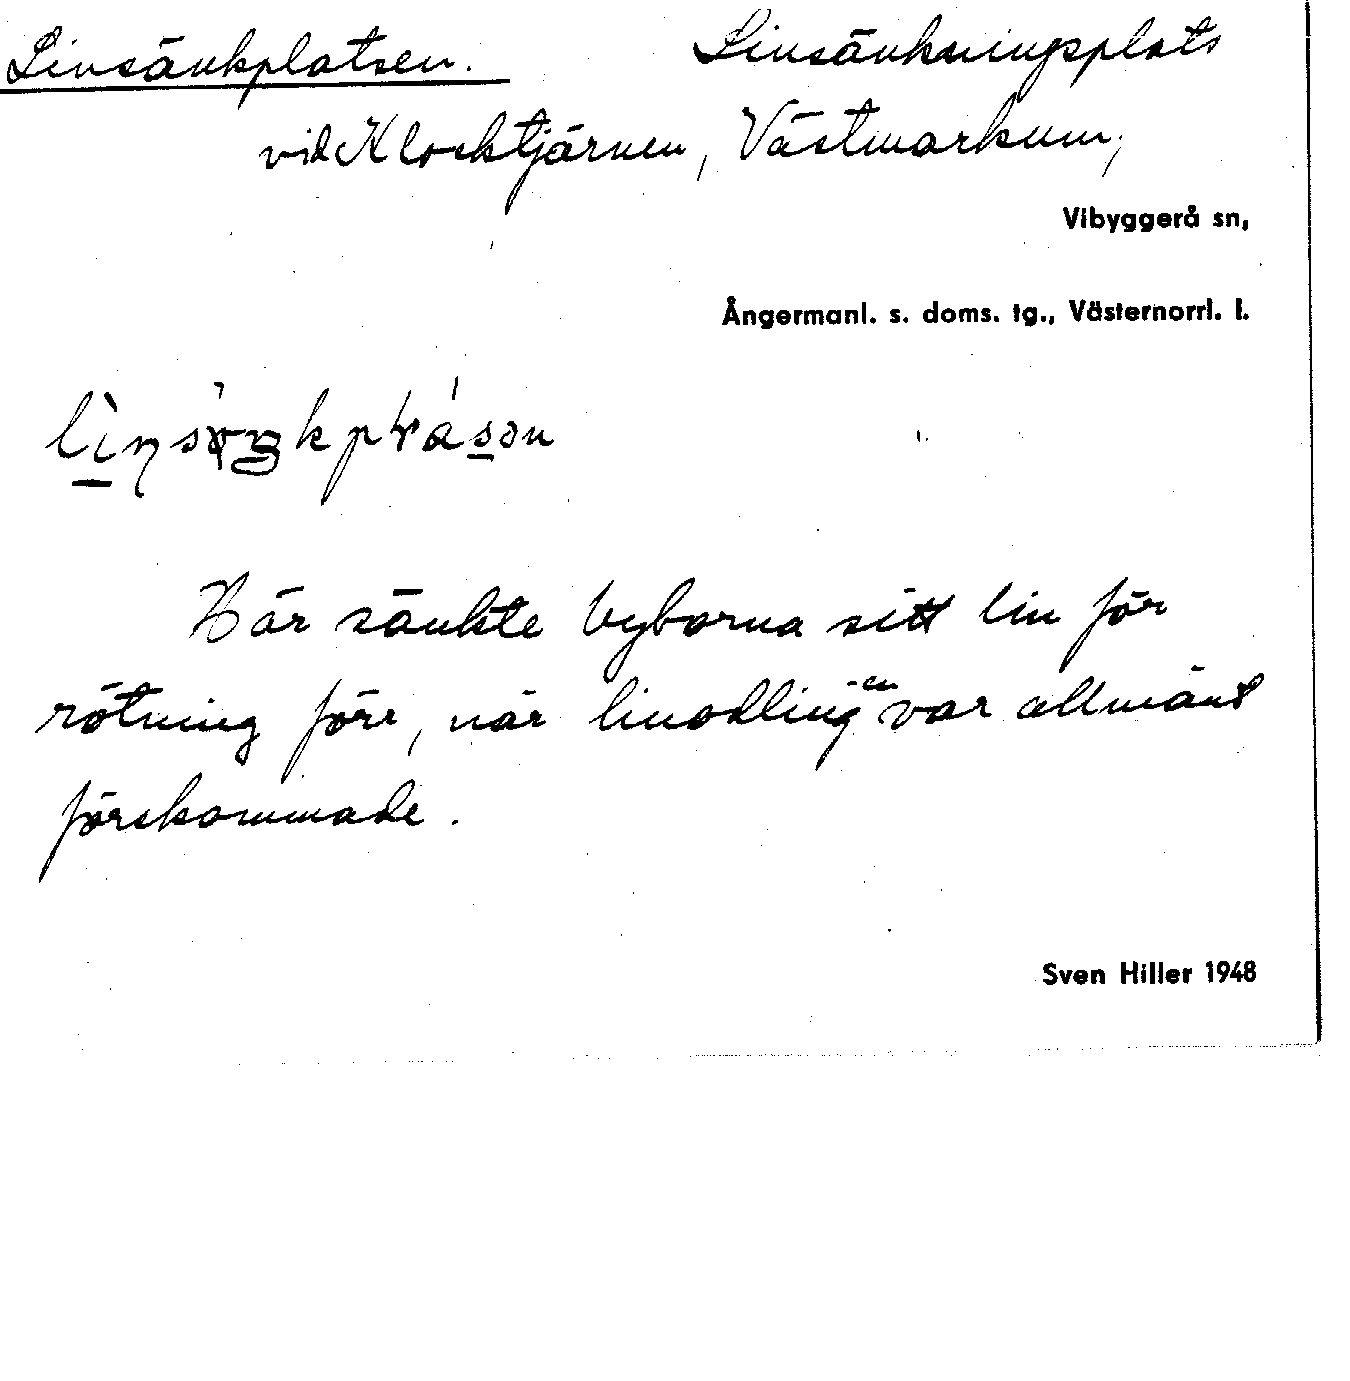 Linsänkplatsen. Linsänkningsplats
vid Klocktjärnen, Västmarkum,
Vibyggerå sn,
Ångermanl. s. doms. tg., Västernorrl. l.
Här sänkte byborna sitt lin för
rötning förr, när linodlingen var allmänt
förekommade.
Sven Hiller 1948